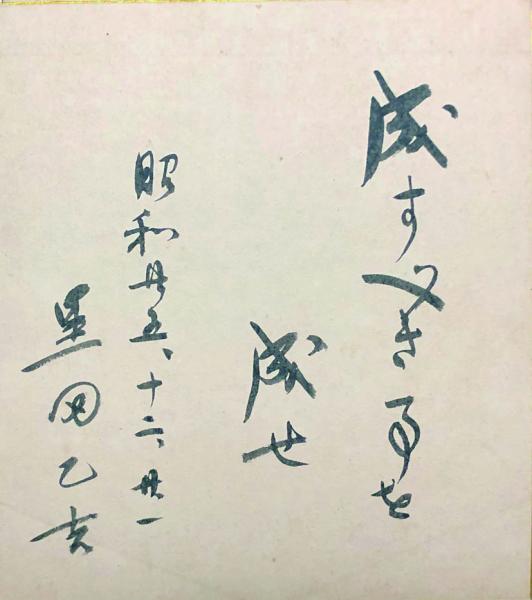 成すべき事を
成せ
昭和廿五、十二、廿一
黒田乙吉